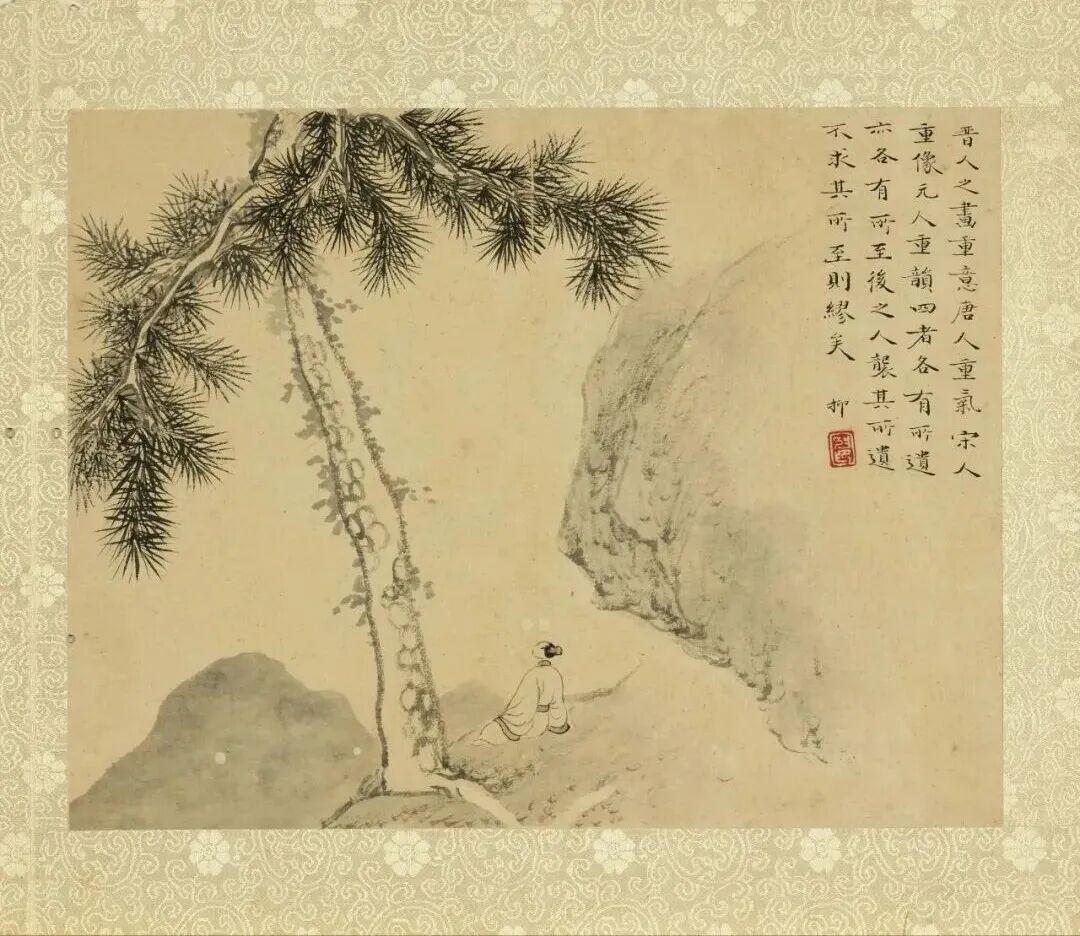 晋人之畫重意唐人重氣宋人
重像元人重韻四者各有所遺
亦各有所至後之人襲其所遺
不求其所至則繆矣